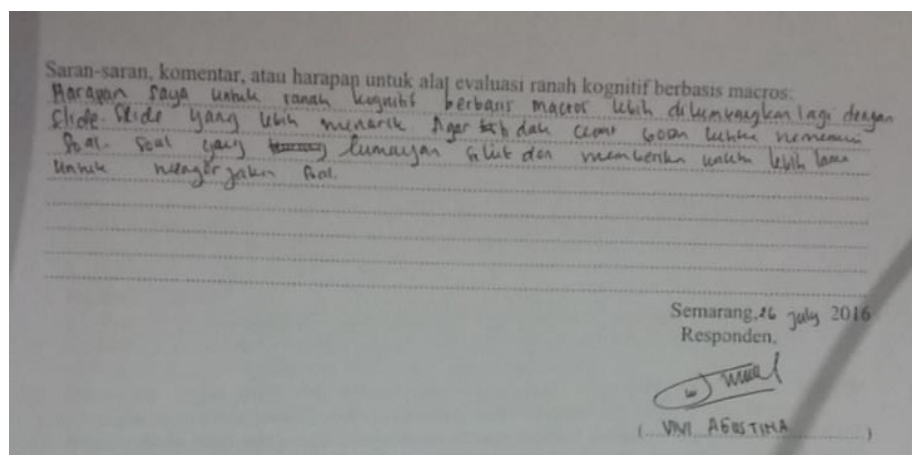 Saran-saran, komentar, atau harapan untuk alat evaluasi ranah kognitif berbasis macros:
Harapan saya untuk ranah kognitif berbasis macros lebih dikembangkan lagi dengan
Slide-Slide yang lebih menarik Agar tidak cepat bosan ketika menemui
Soal-soal yang lumayan sulit dan memberikan waktu lebih lama
Untuk mengerjakan Soal.
Semarang, 26 July 2016
Responden,
(VIVI AGUSTINA)